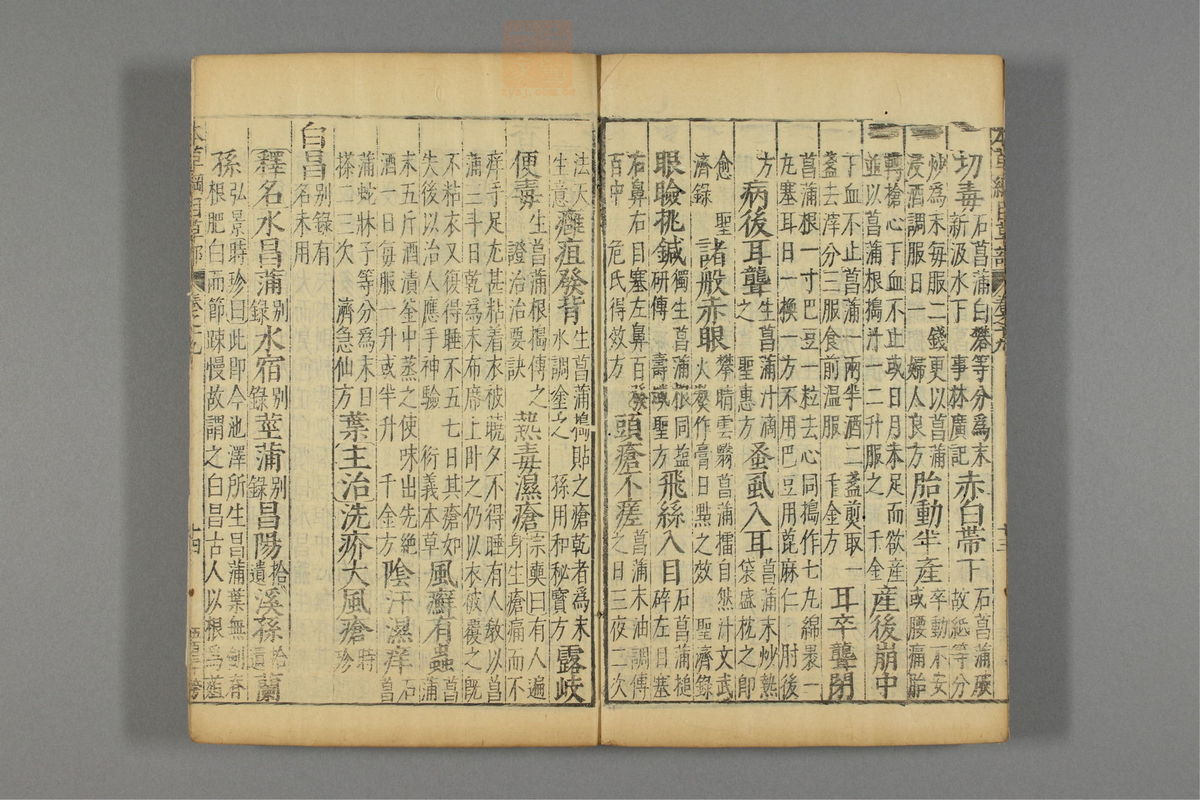 本草綱目草部 卷十九 十三
切毒石菖蒲白礬等分爲末新汲水下 事林廣記赤白帶下石菖蒲破故紙等分
炒爲末每服二錢更以菖蒲浸酒調服日一 婦人良方胎動半產卒動不安或腰痛胎
轉搶心下血不止或日月未足而欲產並以菖蒲根搗汁一二升服之 千金產後崩中
下血不止菖蒲一兩半酒二盞煎取一盞去滓分三服食前溫服 千金方耳卒聾閉
菖蒲根一寸巴豆一粒去心同搗作七丸綿裹一丸塞耳日一換一方不用巴豆用蓖麻仁 肘後
方病後耳聾生菖蒲汁滴之 聖惠方蚤虱入耳菖蒲末炒熱袋盛枕之即
愈 聖濟錄諸般赤眼攀睛雲翳菖蒲擂自然汁文武火熬作膏日點之效 聖濟錄
眼瞼挑鍼獨生菖蒲根同鹽研傅 壽域聖方飛絲入目石菖蒲搥碎左目塞
右鼻右目塞左鼻百發百中 危氏得效方頭瘡不瘥菖蒲末油調傅之日三夜二次
法天生意癰疽發背生菖蒲搗貼之瘡乾者爲末水調塗之 孫用和秘寶方露岐
便毒生菖蒲根搗傅之 證治治要訣熱毒濕瘡宗奭曰有人遍身生瘡痛而不
痒手足尤甚粘着衣被曉夕不得睡有人教以菖蒲三斗日乾爲末布席上卧之仍以衣被覆之既
不粘衣又復得睡不五七日其瘡如失後以治人應手神驗 衍義本草風癬有蟲菖蒲
末五斤酒漬釜中蒸之使味出先絕酒一日每服一升或半升 千金方陰汗濕痒石菖
蒲蛇牀子等分爲末日搽二三次 濟急仙方葉主治洗疥大風瘡時珍
白昌別錄有名未用
釋名水昌蒲別錄水宿別錄莖蒲別錄昌陽拾遺溪孫拾遺蘭
孫弘景時珍曰此即今池澤所生昌蒲葉無劍脊根肥白而節踈慢故謂之白昌古人以根爲菹
本草綱目草部 卷十九 十四